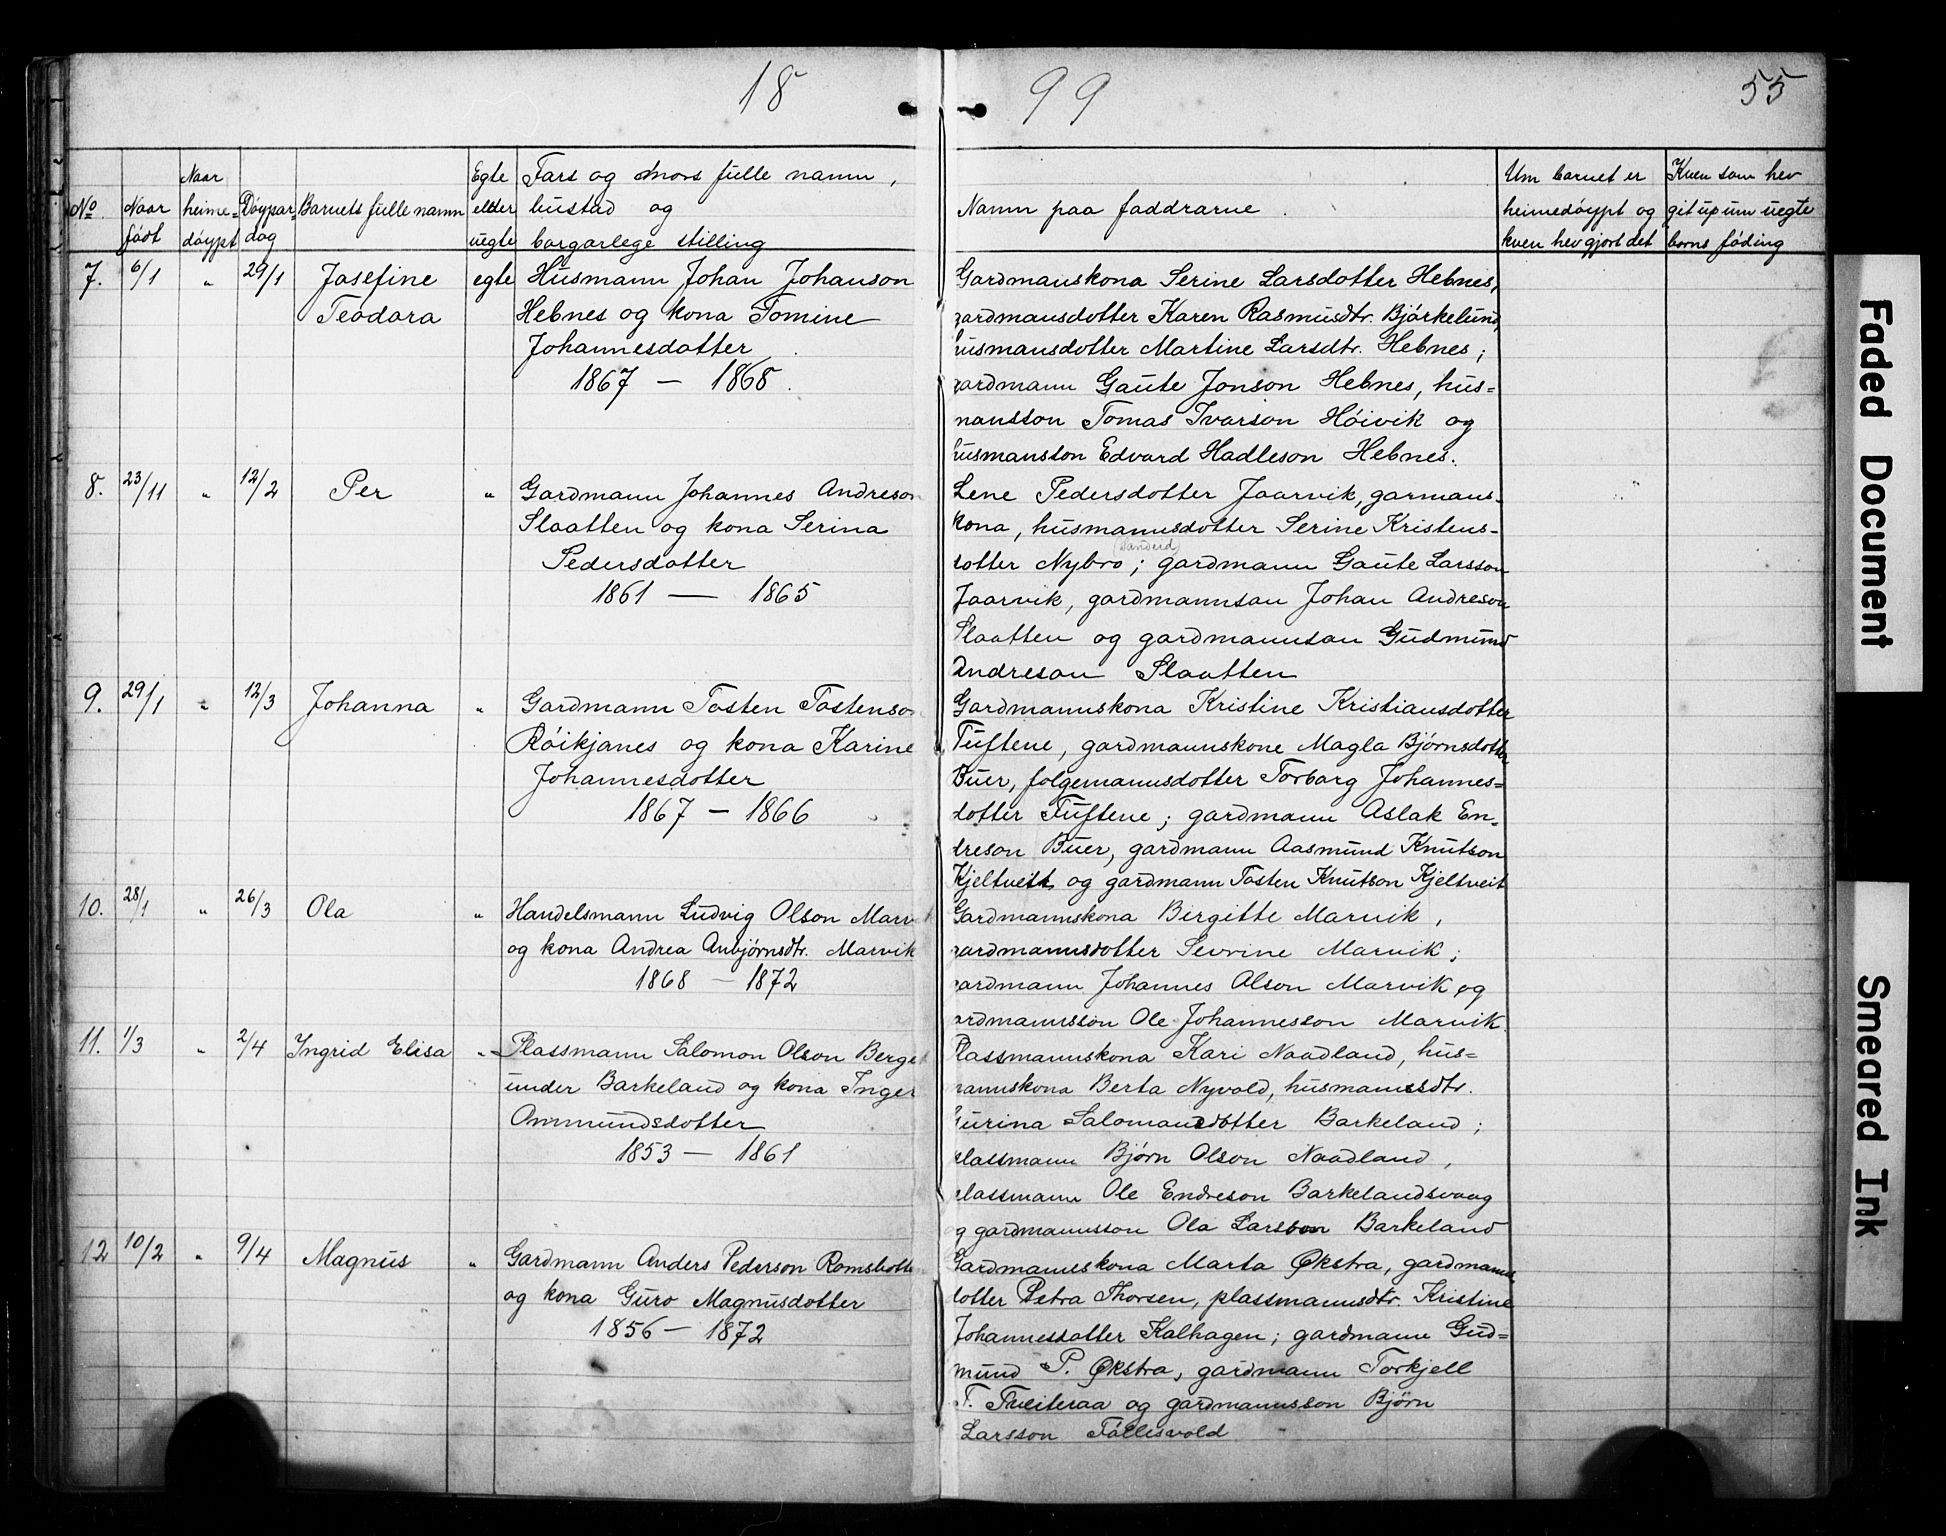 18 99 55
No
Naar født
Naar heimedøypt
Døypardag
Barnets fulle namn
Egte elder uegte
Fars og Mors fulle namn, bustad og borgarlege stilling
Namn paa faddrarne.
Um barnet er heimedøypt og kven hev gjort det
Kven som hev git up um uegte borns føding
7. 6/1 " 29/1 Josefine Teodora egte
Husmann Johan Johanson
Hebnes og kona Tomine
Johannesdotter
1867 — 1868.
Gardmanskona Serine Larsdotter Hebnes,
gardmansdotter Karen Rasmusdtr. Bjørkelund,
husmansdotter Martine Larsdtr. Hebnes;
gardmann Gaute Jonson Hebnes, hus=
mansson Tomas Ivarson Høivik og
husmansson Edvard Hadleson Hebnes.
8. 23/11 " 12/2 Per "
Gardmann Johannes Andreson
Slaatten og kona Serina
Pedersdotter
1861 — 1865
Lene Pedersdotter Jaarvik, garmans-
kona, husmannsdotter Serine Kristens-
(Sandeid)
dotter Nybro; gardmann Gaute Larsson
Jaarvik, gardmannson Johan Andreson
Slaatten og gardmannson Gudmund
Andreson Slaatten
9. 29/1 " 12/3 Johanna "
Gardmann Tosten Tostenson
Røikjanes og kona Karine
Johannesdotter
1867 — 1866
Gardmannskona Kristine Kristiansdotter
Tuftene, gardmannskone Magla Bjørnsdotter
Buer, folgemannsdotter Torborg Johannes=
dotter Tuftene; gardmann Aslak En-
dreson Buer, gardmann Aasmund Knutson
Kjeltveit og gardmann Tosten Knutson Kjeltveit
10. 28/1 " 26/3 Ola "
Handelsmann Ludvig Olson Marvik
og kona Andrea Anbjørnsdtr. Marvik
1868 — 1872
Gardmannskona Birgitte Marvik,
gardmannsdotter Sevrine Marvik;
gardmann Johannes Olson Marvik og
gardmannsson Ole Johannesson Marvik.
11. 1/3 " 2/4 Ingrid Elisa "
Plassmann Salomon Olson Berge
under Barkeland og kona Inger
Ommundsdotter
1853 — 1861
Plassmannskona Kari Naadland, hus=
mannskona Berta Nyvold, husmannsdtr.
Gurina Salomonsdotter Barkeland;
plassmann Bjørn Olson Naadland,
plassmann Ole Endreson Barkelandsvaag
og gardmannsson Ola Larsson Barkeland
12 10/2 " 9/4 Magnus "
Gardmann Anders Pederson Romsbotten
og kona Guro Magnusdotter
1856 — 1872
Gardmanneskona Marta Økstra, gardmanns
dotter Petra Thorsen, plassmannsdtr. Kristine
Johannesdotter Kalhagen; gardmann Gud=
mund P. Økstra, gardmann Torkjell
T. Tveiteraa og gardmannsson Bjørn
Larsson Tøllisvold
Faded Document
Smeared Ink